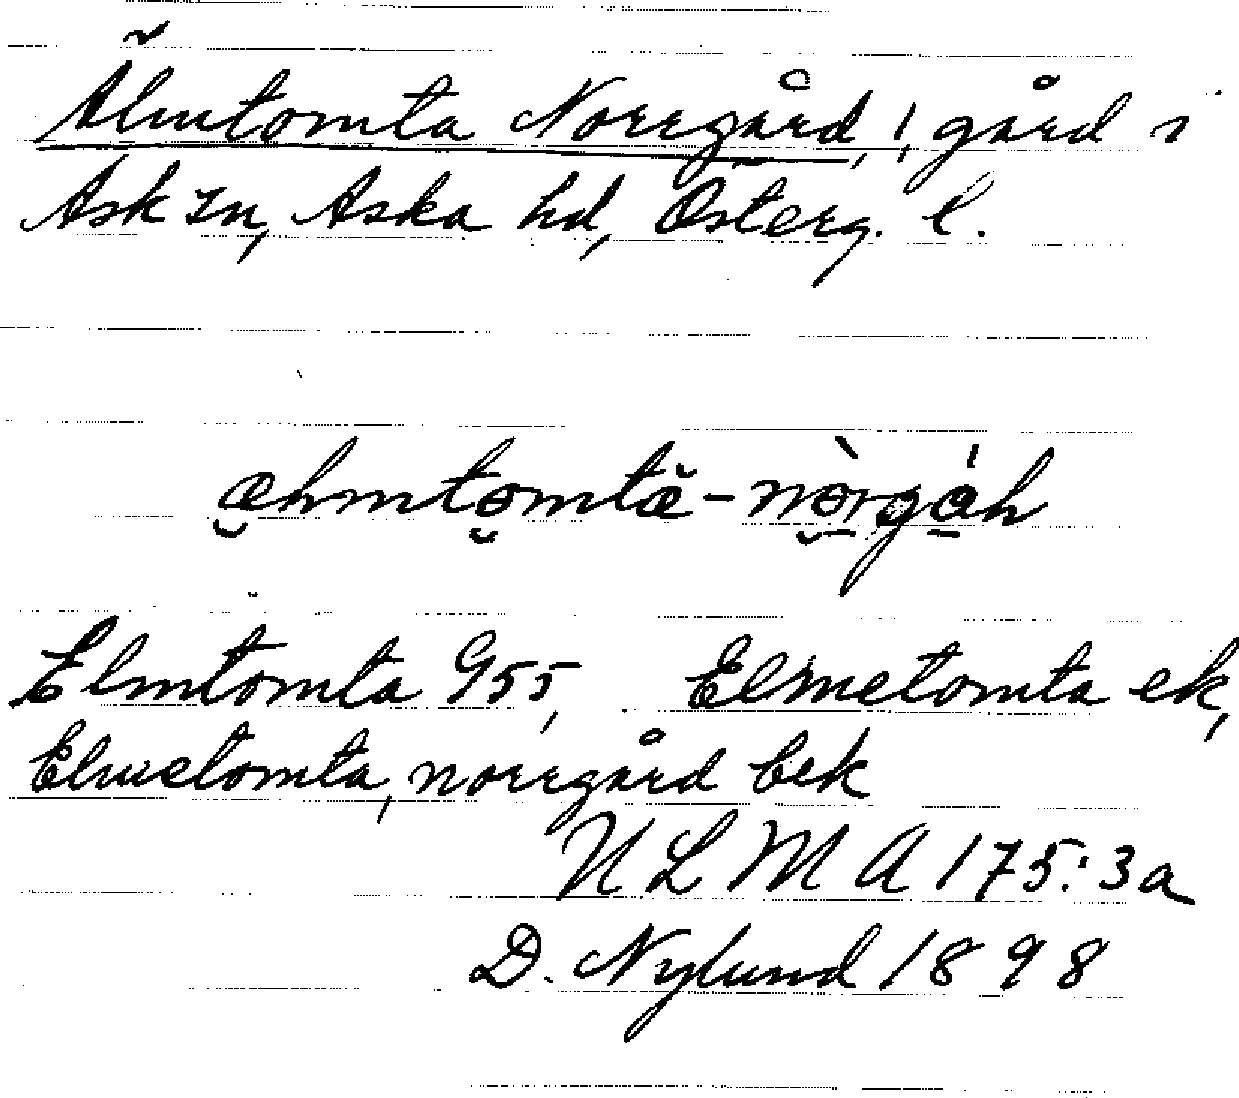 Älmtomta Norrgård, !, gård i
Ask sn, Aska hd, Österg. l.
æhmtomtæ̆-nòrgáh
Elmtomta 955, Elmetomta ek,
Elmetomta, norrgård bek
NLMA 175:3a
D. Nylund 1898